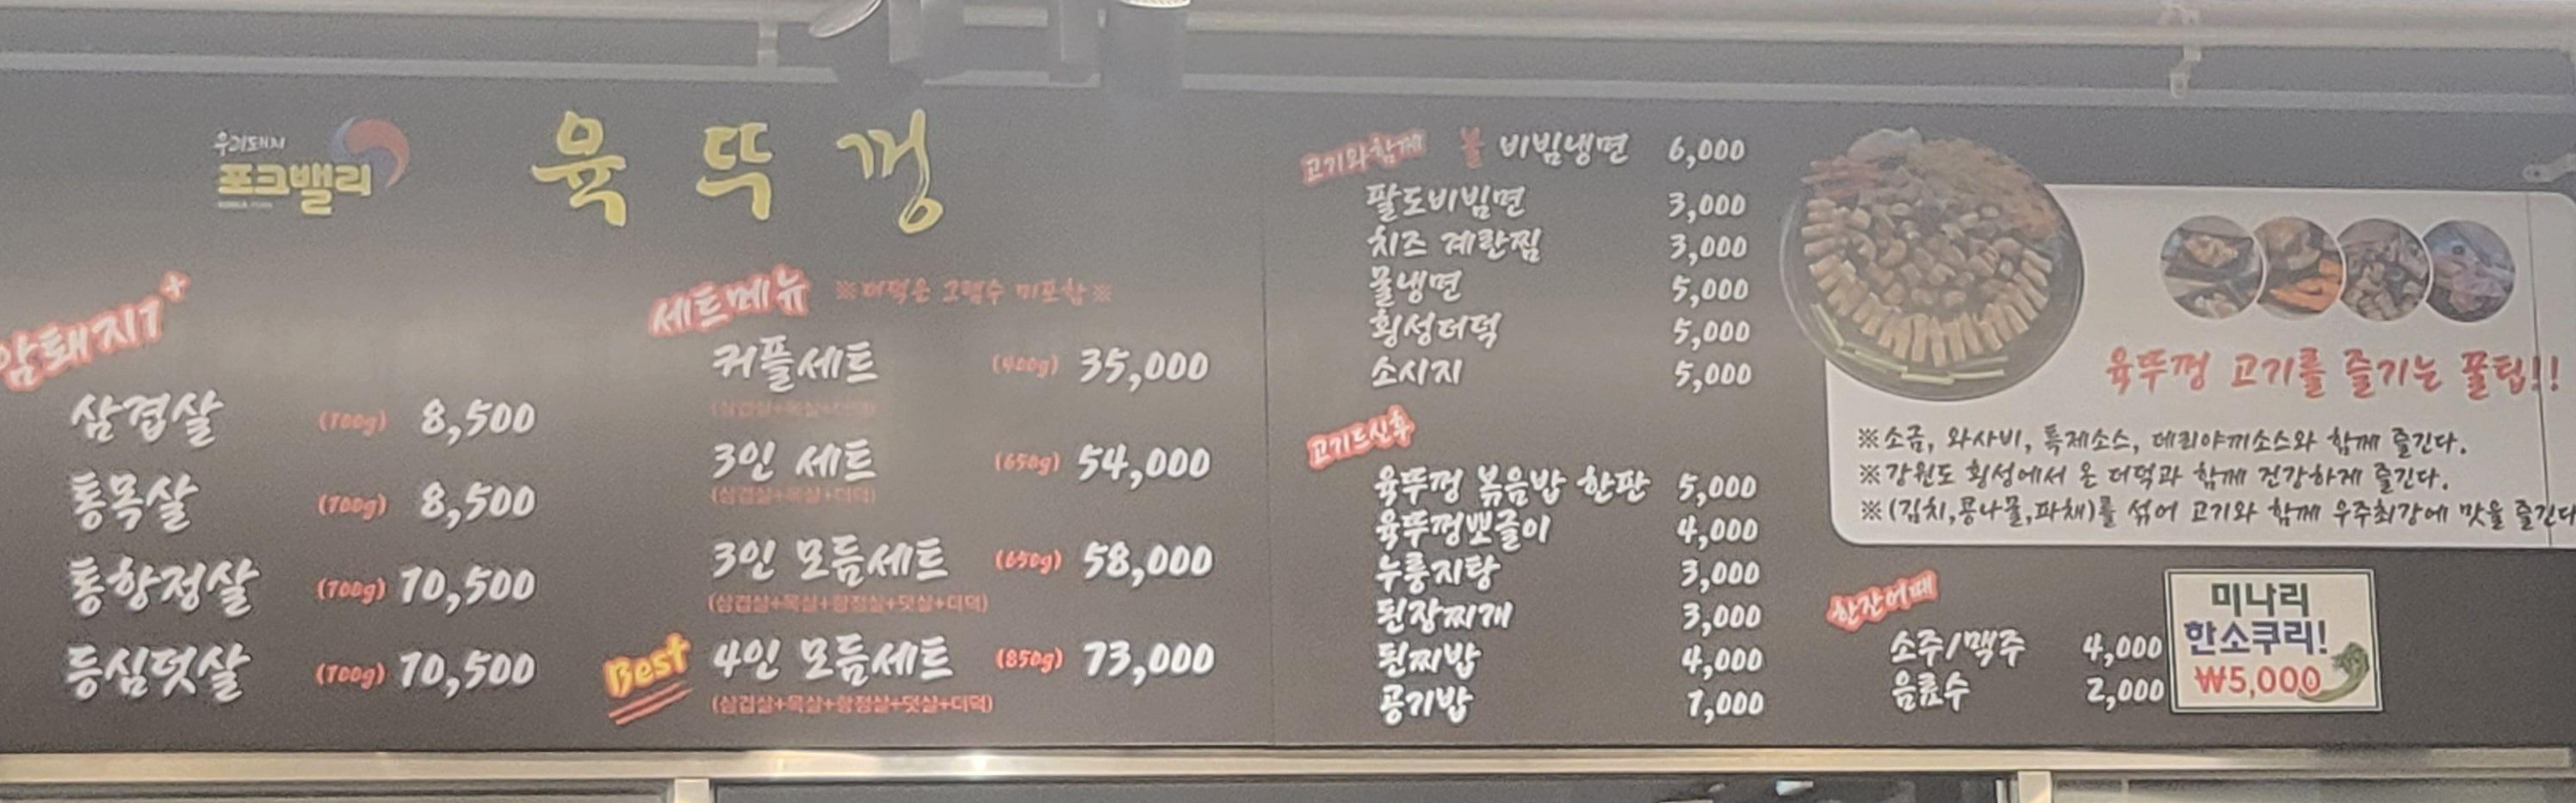 우리돼지
포크밸리
육뚜껑
암퇘지 1+
삼겹살 (100g) 8,500
통목살 (100g) 8,500
통항정살 (100g) 10,500
등심덧살 (100g) 10,500
세트메뉴 ※더덕은 그램수 미포함※
커플세트 (400g) 35,000
(삼겹살+목살+더덕)
3인 세트 (650g) 54,000
(삼겹살+목살+더덕)
3인 모듬세트 (650g) 58,000
(삼겹살+목살+항정살+덧살+더덕)
Best 4인 모듬세트 (850g) 73,000
(삼겹살+목살+항정살+덧살+더덕)
고기와함께
불 비빔냉면 6,000
팔도비빔면 3,000
치즈 계란찜 3,000
물냉면 5,000
횡성더덕 5,000
소시지 5,000
고기드신후
육뚜껑 볶음밥 한판 5,000
육뚜껑뽀글이 4,000
누룽지탕 3,000
된장찌개 3,000
된찌밥 4,000
공기밥 1,000
육뚜껑 고기를 즐기는 꿀팁!!
※소금, 와사비, 특제소스, 데리야끼소스와 함께 즐긴다.
※강원도 횡성에서 온 더덕과 함께 건강하게 즐긴다.
※(김치,콩나물,파채)를 섞어 고기와 함께 우주최강에 맛을 즐긴다
한잔어때
소주/맥주 4,000
음료수 2,000
미나리
한소쿠리!
₩5,000